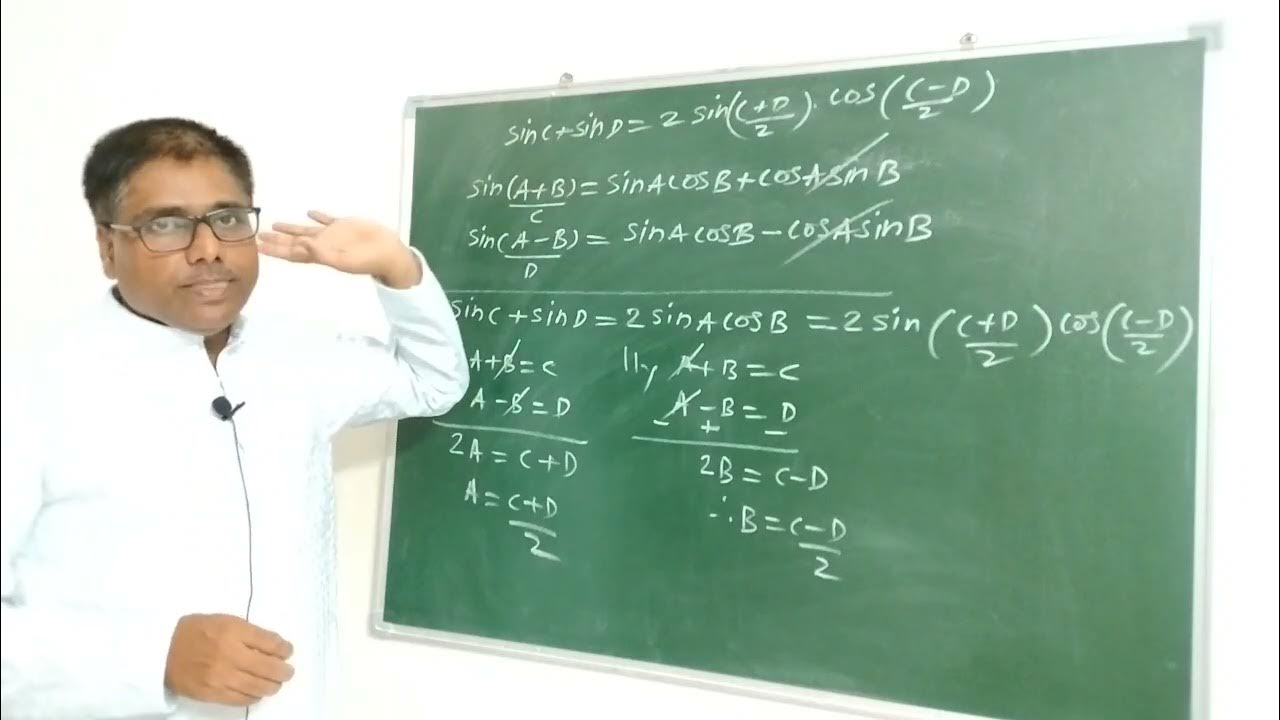 sinC+sinD=2 sin((C+D)/2).cos((C-D)/2)
sin(A+B)=sinAcosB+cosAsinB
C
sin(A-B)= sinAcosB-cosAsinB
D
sinC+sinD=2sinAcosB=2sin((C+D)/2)cos((C-D)/2)
A+B=C
A-B=D
2A=C+D
A=(C+D)/2
lly A+B=C
A-B=D
- + -
2B=C-D
∴B=(C-D)/2